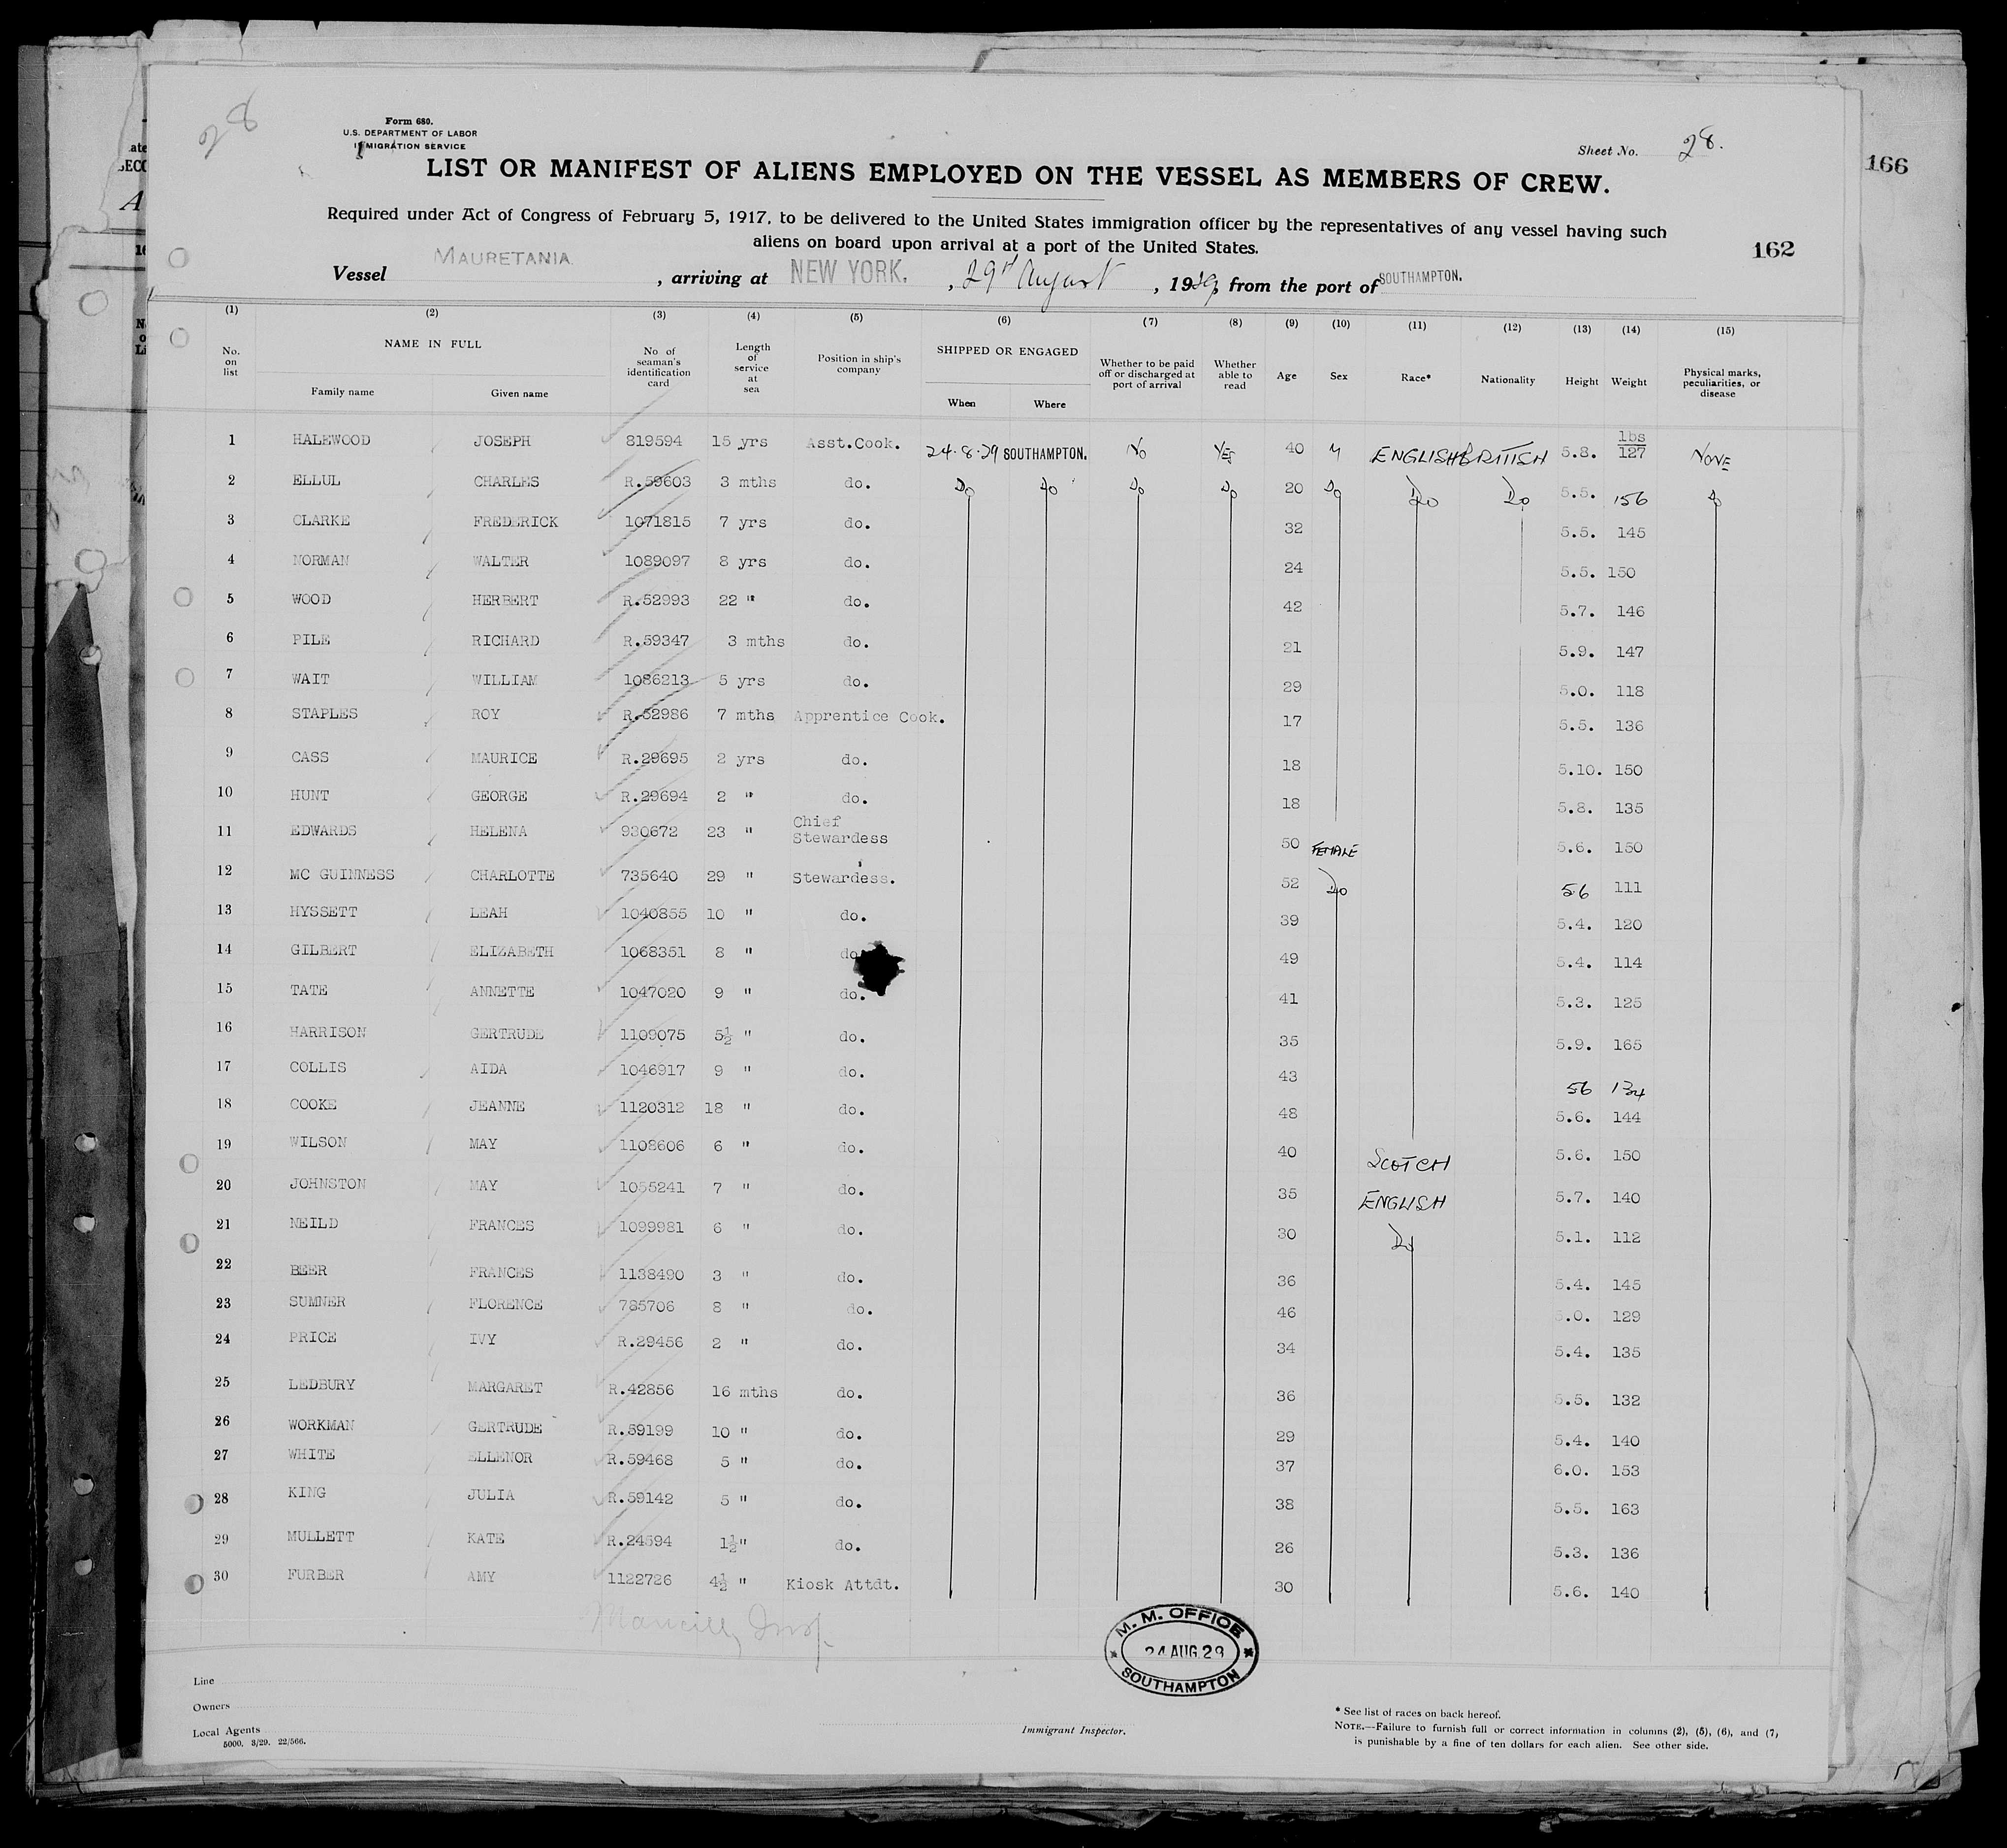 28
Form 680.
U.S. DEPARTMENT OF LABOR
IMMIGRATION SERVICE
Sheet No. 28.
166
LIST OR MANIFEST OF ALIENS EMPLOYED ON THE VESSEL AS MEMBERS OF CREW.
Required under Act of Congress of February 5, 1917, to be delivered to the United States immigration officer by the representatives of any vessel having such
aliens on board upon arrival at a port of the United States.
162
Vessel MAURETANIA , arriving at NEW YORK. , 29th August , 1929, from the port of SOUTHAMPTON.
(1) (2) (3) (4) (5) (6) (7) (8) (9) (10) (11) (12) (13) (14) (15)
No. on list NAME IN FULL Family name Given name No of seaman's identification card Length of service at sea Position in ship's company SHIPPED OR ENGAGED When Where Whether to be paid off or discharged at port of arrival Whether able to read Age Sex Race* Nationality Height Weight Physical marks, peculiarities, or disease
1 HALEWOOD JOSEPH 819594 15 yrs Asst.Cook. 24.8.29 SOUTHAMPTON. No YES 40 M ENGLISH BRITISH 5.8. lbs 127 NONE
2 ELLUL CHARLES R.59603 3 mths do. Do Do Do Do 20 Do Do Do 5.5. 156 Do
3 CLARKE FREDERICK 1071815 7 yrs do. 32 5.5. 145
4 NORMAN WALTER 1089097 8 yrs do. 24 5.5. 150
5 WOOD HERBERT R.52993 22 " do. 42 5.7. 146
6 PILE RICHARD R.59347 3 mths do. 21 5.9. 147
7 WAIT WILLIAM 1086213 5 yrs do. 29 5.0. 118
8 STAPLES ROY R.52986 7 mths Apprentice Cook. 17 5.5. 136
9 CASS MAURICE R.29695 2 yrs do. 18 5.10. 150
10 HUNT GEORGE R.29694 2 " do. 18 5.8. 135
11 EDWARDS HELENA 930672 23 " Chief Stewardess 50 FEMALE 5.6. 150
12 MC GUINNESS CHARLOTTE 735640 29 " Stewardess. 52 Do 56 111
13 HYSSETT LEAH 1040855 10 " do. 39 5.4. 120
14 GILBERT ELIZABETH 1068351 8 " do 49 5.4. 114
15 TATE ANNETTE 1047020 9 " do. 41 5.3. 125
16 HARRISON GERTRUDE 1109075 5½ " do. 35 5.9. 165
17 COLLIS AIDA 1046917 9 " do. 43 56 134
18 COOKE JEANNE 1120312 18 " do. 48 5.6. 144
19 WILSON MAY 1108606 6 " do. 40 SCOTCH 5.6. 150
20 JOHNSTON MAY 1055241 7 " do. 35 ENGLISH 5.7. 140
21 NEILD FRANCES 1099981 6 " do. 30 Do 5.1. 112
22 BEER FRANCES 1138490 3 " do. 36 5.4. 145
23 SUMNER FLORENCE 785706 8 " do. 46 5.0. 129
24 PRICE IVY R.29456 2 " do. 34 5.4. 135
25 LEDBURY MARGARET R.42856 16 mths do. 36 5.5. 132
26 WORKMAN GERTRUDE R.59199 10 " do. 29 5.4. 140
27 WHITE ELLENOR R.59468 5 " do. 37 6.0. 153
28 KING JULIA R.59142 5 " do. 38 5.5. 163
29 MULLETT KATE R.24594 1½" do. 26 5.3. 136
30 FURBER AMY 1122726 4½ " Kiosk Attdt. 30 5.6. 140
M. M. OFFICE
24 AUG.29
SOUTHAMPTON
Line
Owners
Local Agents
5000. 3/29. 22/566.
Immigrant Inspector.
* See list of races on back hereof.
NOTE.—Failure to furnish full or correct information in columns (2), (5), (6), and (7)
is punishable by a fine of ten dollars for each alien. See other side.